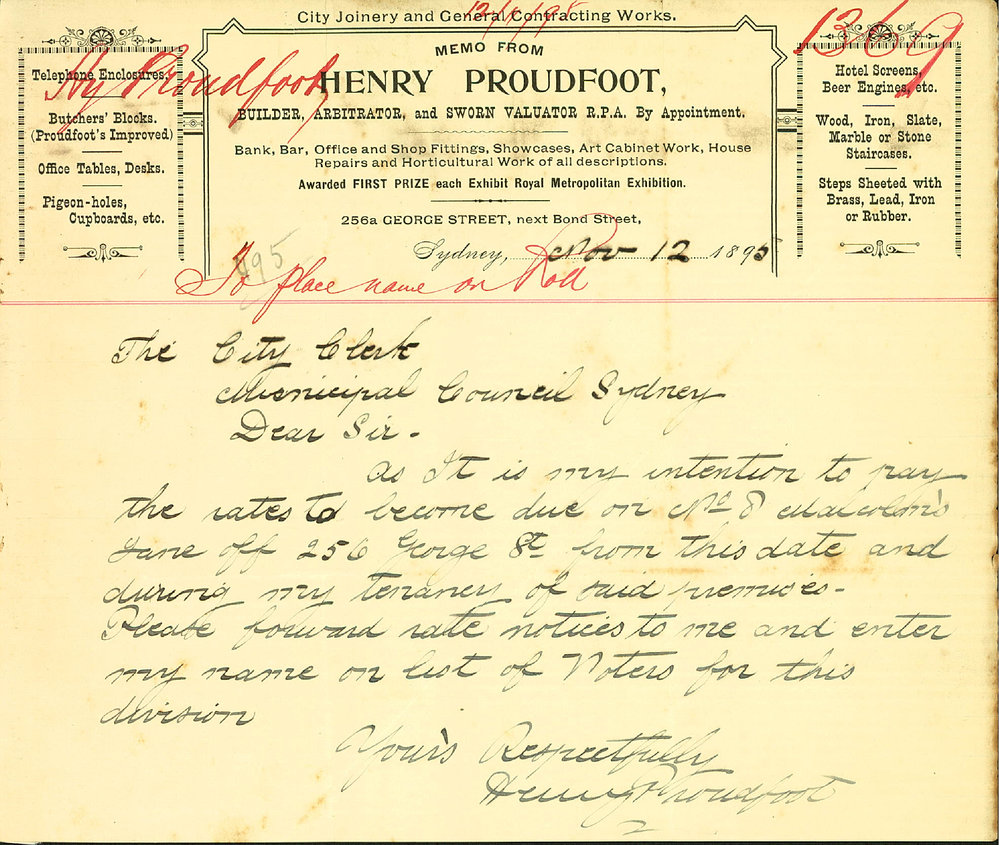 City Joinery and General Contracting Works.
12/11/95
1369
Hy Proudfoot
MEMO FROM
HENRY PROUDFOOT,
BUILDER, ARBITRATOR, and SWORN VALUATOR R.P.A. By Appointment.
Bank, Bar, Office and Shop Fittings, Showcases, Art Cabinet Work, House
Repairs and Horticultural Work of all descriptions.
Awarded FIRST PRIZE each Exhibit Royal Metropolitan Exhibition.
256a GEORGE STREET, next Bond Street,
Sydney, Nov 12 1895
Telephone Enclosures.
Butchers' Blocks.
(Proudfoot's Improved)
Office Tables, Desks.
Pigeon-holes,
Cupboards, etc.
Hotel Screens,
Beer Engines, etc.
Wood, Iron, Slate,
Marble or Stone
Staircases.
Steps Sheeted with
Brass, Lead, Iron
or Rubber.
95
To place name on Roll
The City Clerk
Municipal Council Sydney
Dear Sir -
as It is my intention to pay
the rates to become due on No 8 Malcolm's
Lane off 256 George St from this date and
during my tenancy of said premises -
Please forward rate notices to me and enter
my name on list of Voters for this
division
Your's Respectfully
Henry Proudfoot